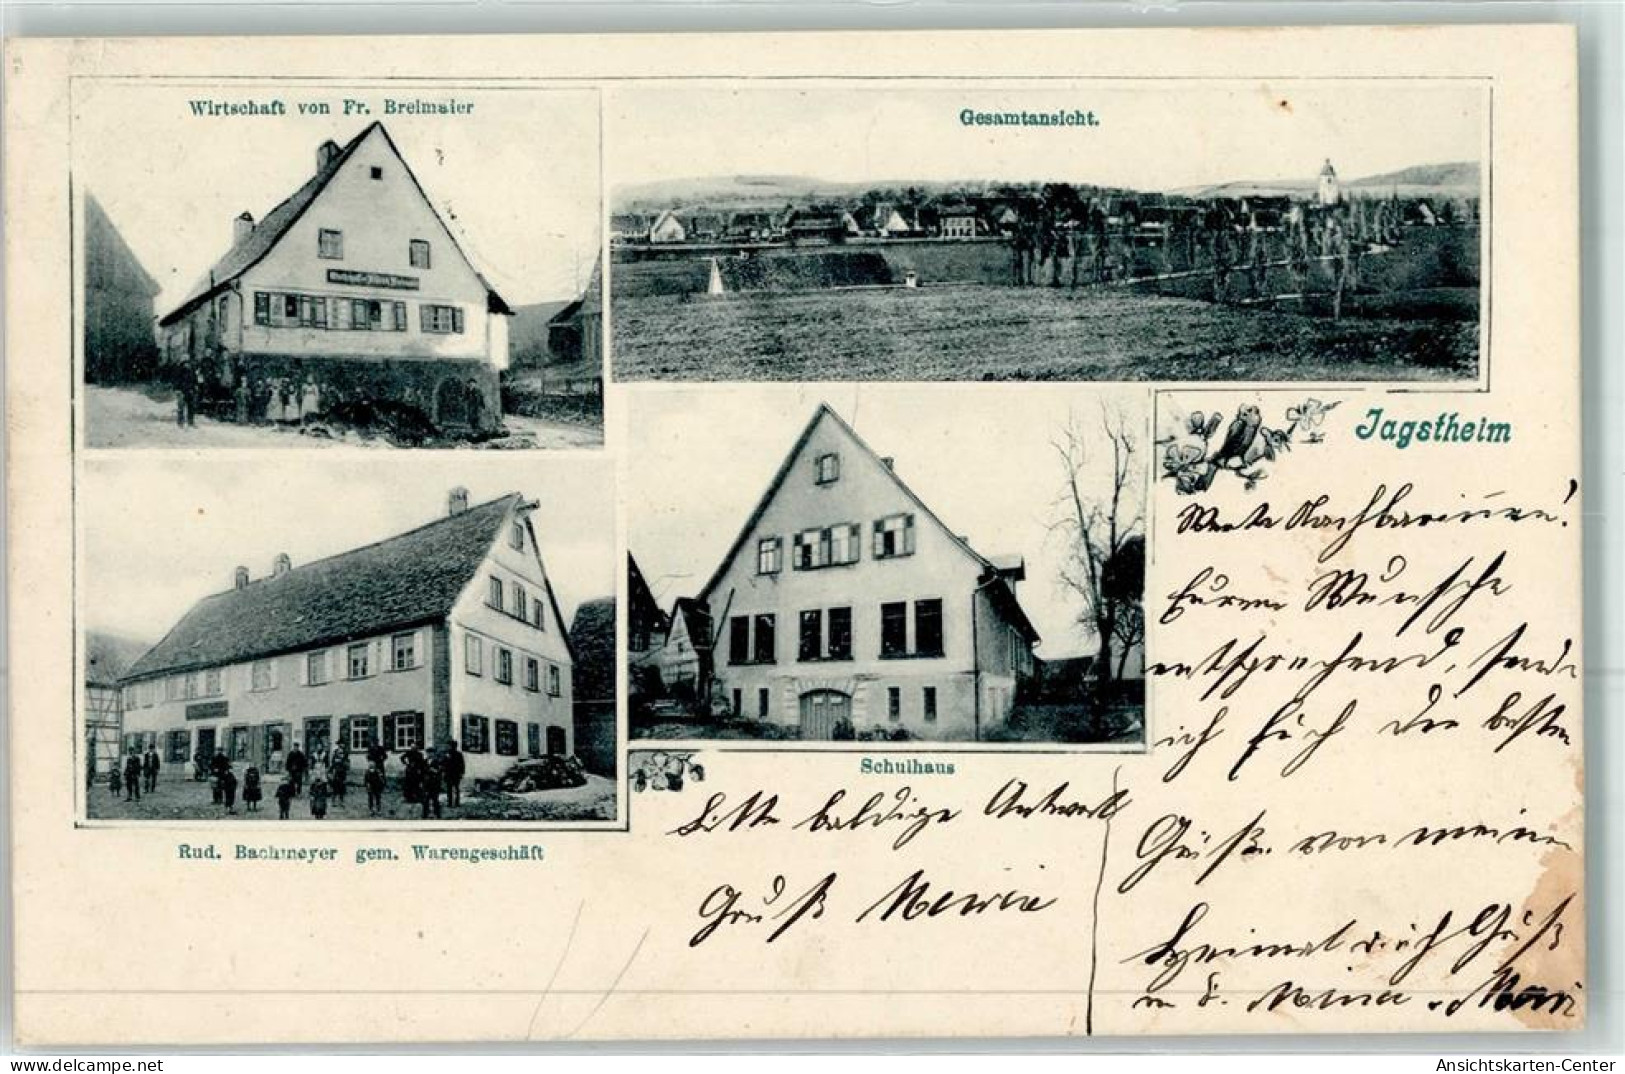 Wirtschaft von Fr. Breimaier
Gesamtansicht.
Jagstheim
Schulhaus
Rud. Bachmeyer gem. Warengeschäft
Werte Nachbarinnen!
Eurem Wunsche
entsprechend, sende
ich Euch die besten
Grüße von meiner
Heimat
Mina
Bitte baldige Antwort
Gruß Maria
AnsichtsKarten-Center